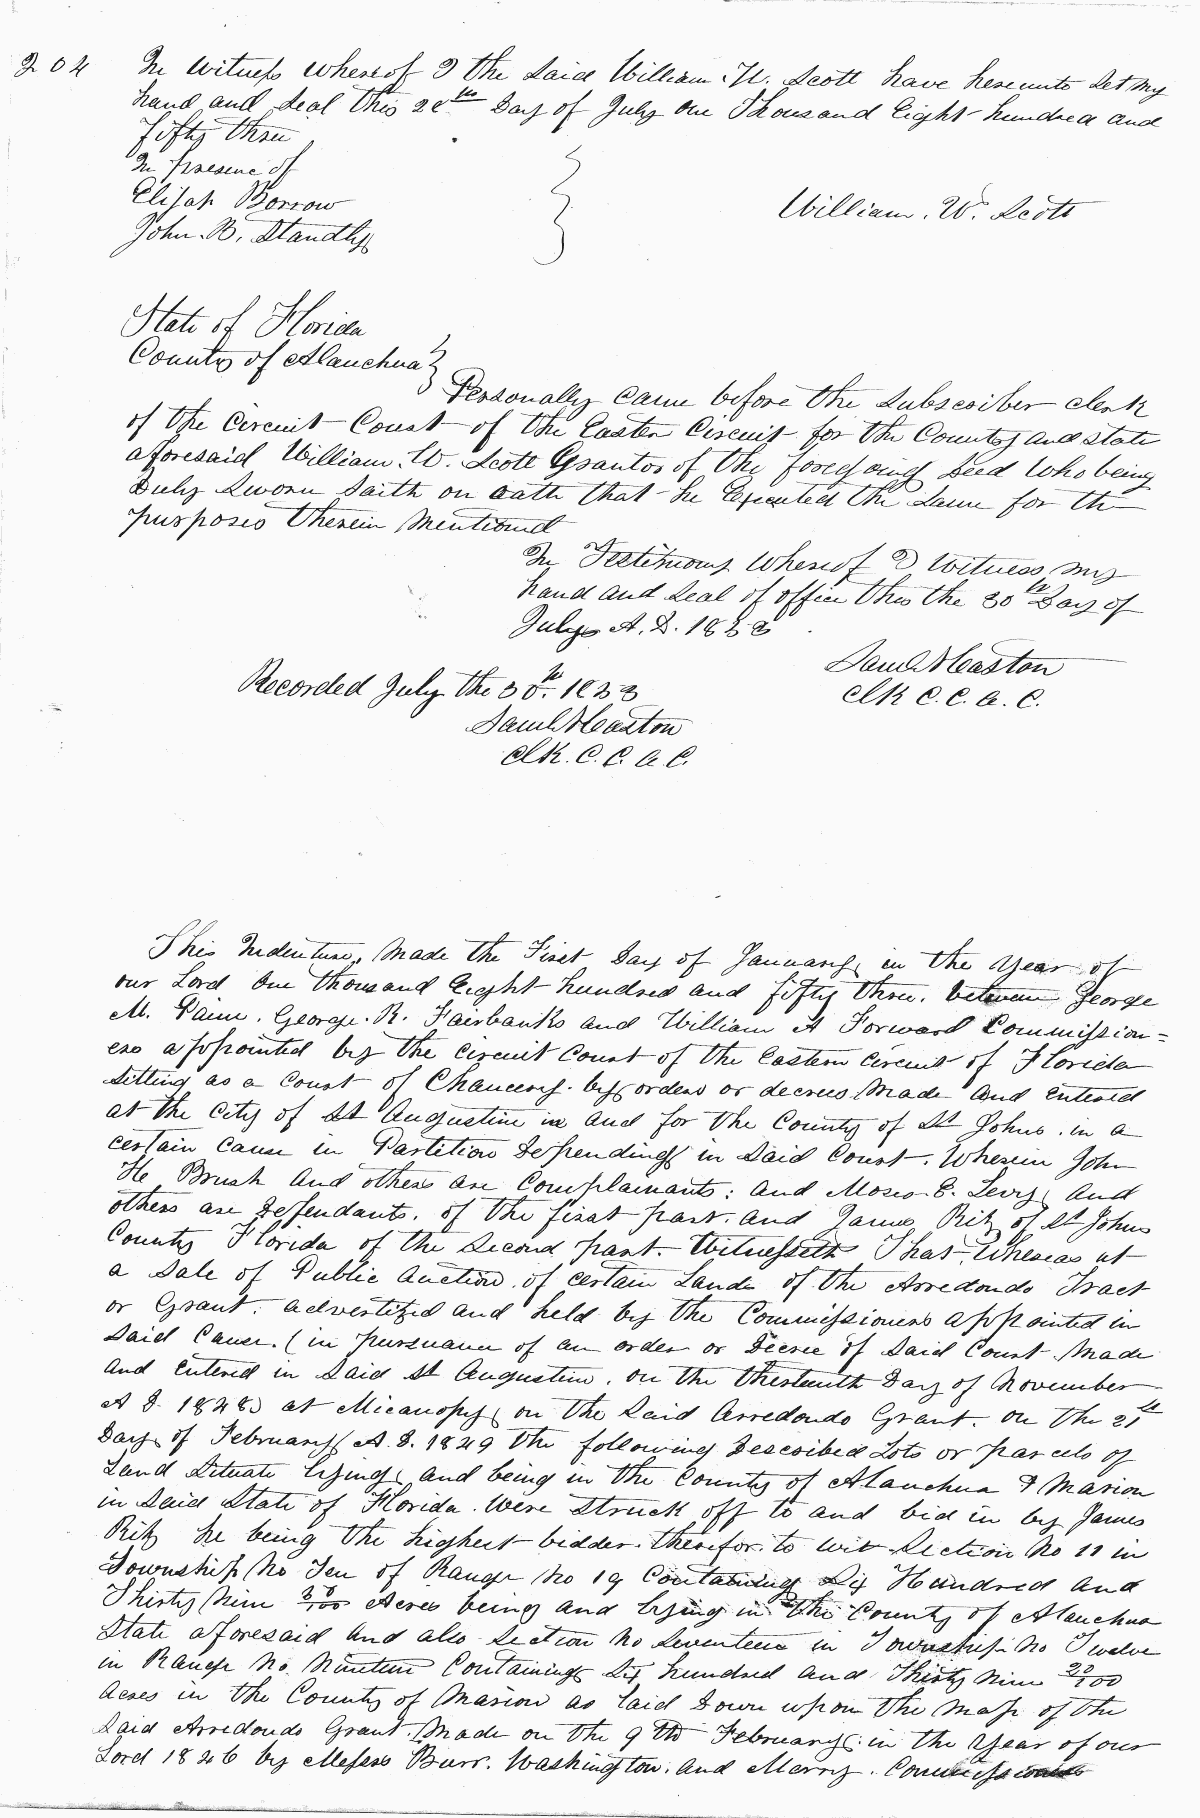 204
In Witness Whereof I the Said William W. Scott have hereunto Set my
hand and Seal this 28th Day of July One Thousand Eight hundred and
fifty three
In presene of
Elijah Borrow
John. B. Standly
William. W. Scott
State of Florida
County of Alauchua
Personally came before the Subscriber clerk
of the Circuit Court of the Eastern Circuit for the County and state
aforesaid William. W. Scott Grantor of the foregoing deed Who being
Duly Sworn Saith on oath that he Executed the Same for the
purposes therein Mentioned
In Testimony Whereof I Witness my
hand and Seal of office this the 30th Day of
July A. D. 1853
Saml Heaston
Clk C. C. A. C.
Recorded July the 30th. 1853
Saml Heaston
Clk. C. C. A. C.
This Indenture, Made the First Day of January, in the Year of
our Lord One thousand Eight hundred and fifty three. between George
M. Paine. George. R. Fairbanks and William A Forward Commission=
ers appointed by the Circuit Court of the Eastern Circuit of Florida
Sitting as a Court of Chancery. by orders or decrees Made and Entered
at the City of St Augustine in and for the County of St Johns. in a
certain Cause in Partition Depending in Said Court. Wherein John
H. Brush and others are Complainants: and Moses. E. Levy, and
others are Defendants. of the first part. and James Ritz of St Johns
County Florida of the Second part. Witnesseth That Whereas at
a Sale of Public Auction. of certain Lands of the Arredondo Tract
or Grant. advertized and held by the Commissioners appointed in
Said Cause. (in pursuance of an order or Decree of Said Court Made
and Entered in Said St Augustine. on the thirteenth Day of November
A D. 1848) at Micanopy, on the Said Arredondo Grant. on the 21st
Day of February A. D. 1849 the following Described Lots or parcels of
Land Situate lying, and being in the County of Alauchua & Marion
in Said State of Florida. Were Struck off to and bid in by James
Ritz he being the highest bidder. therefor. to wit Section No 11 in
Township No Ten of Range No 19 Containing Six Hundred and
Thirty Nine 20/100 Acres being and lying in the County of Alauchua
State aforesaid and also Section No Seventeen in Township No Twelve
in Range No. Nineteen Containing Six hundred and Thirty Nine 20/100
acres in the County of Marion as laid Down upon the Map of the
Said Arredondo Grant. Made on the 9th February. in the Year of our
Lord 1846 by Messrs Burr. Washington. and Merry.